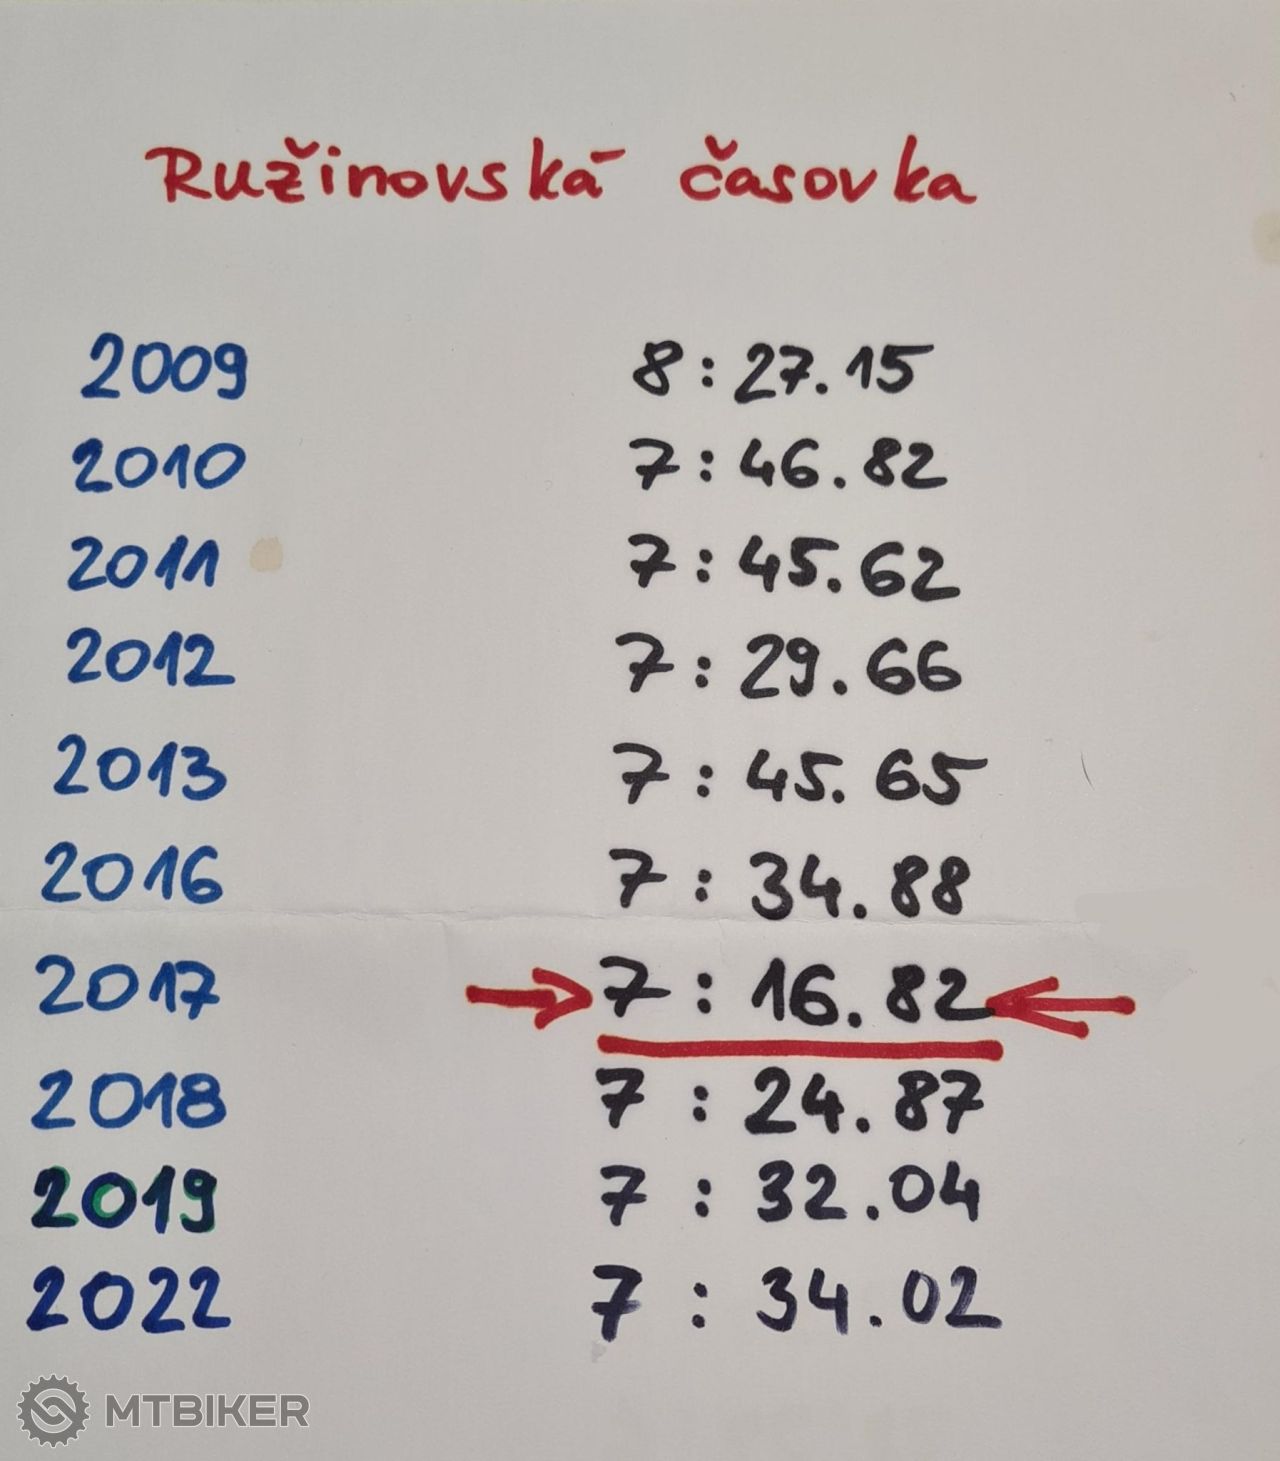 Ružinovská časovka
2009 8:27.15
2010 7:46.82
2011 7:45.62
2012 7:29.66
2013 7:45.65
2016 7:34.88
2017 7:16.82
2018 7:24.87
2019 7:32.04
2022 7:34.02
MTBIKER